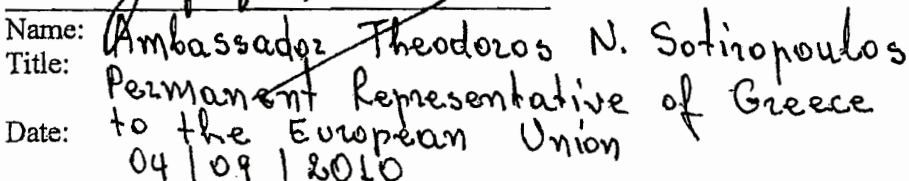 Name: Ambassador Theodoros N. Sotiropoulos
Title: Permanent Representative of Greece
Date: to the European Union
04/09/2010